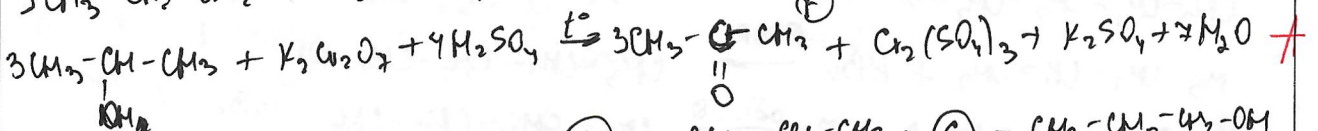 3CH₃-CH-CH₃ + K₂Cr₂O₇ + 4H₂SO₄ t° → 3CH₃-C-CH₃ + Cr₂(SO₄)₃ + K₂SO₄ + 7H₂O +
OH
O
CH₂-OH